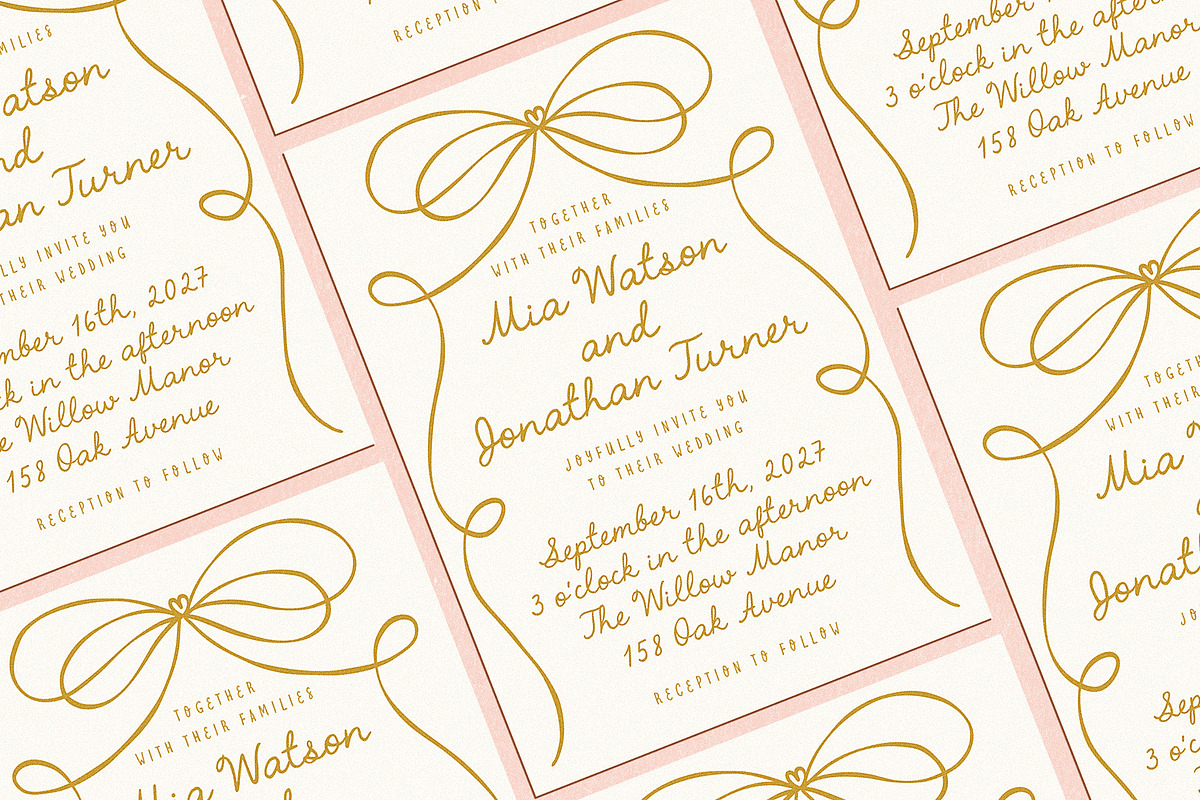 MILIES
atson
nd
an Turner
LLY INVITE YOU
THEIR WEDDING
mber 16th, 2027
ck in the afternoon
e Willow Manor
158 Oak Avenue
RECEPTION TO FOLLOW
RECEPTION T
TOGETHER
WITH THEIR FAMILIES
Mia Watson
and
Jonathan Turner
JOYFULLY INVITE YOU
TO THEIR WEDDING
September 16th, 2027
3 o'clock in the afternoon
The Willow Manor
158 Oak Avenue
RECEPTION TO FOLLOW
September
3 o'clock in the after
The Willow Manor
158 Oak Avenue
RECEPTION TO FOLLOW
TOGETHER
WITH THEIR FAMILIES
Mia Watson
TOGETHE
WITH THEIR
Mia
Jonat
JO
Sep
3 o'c